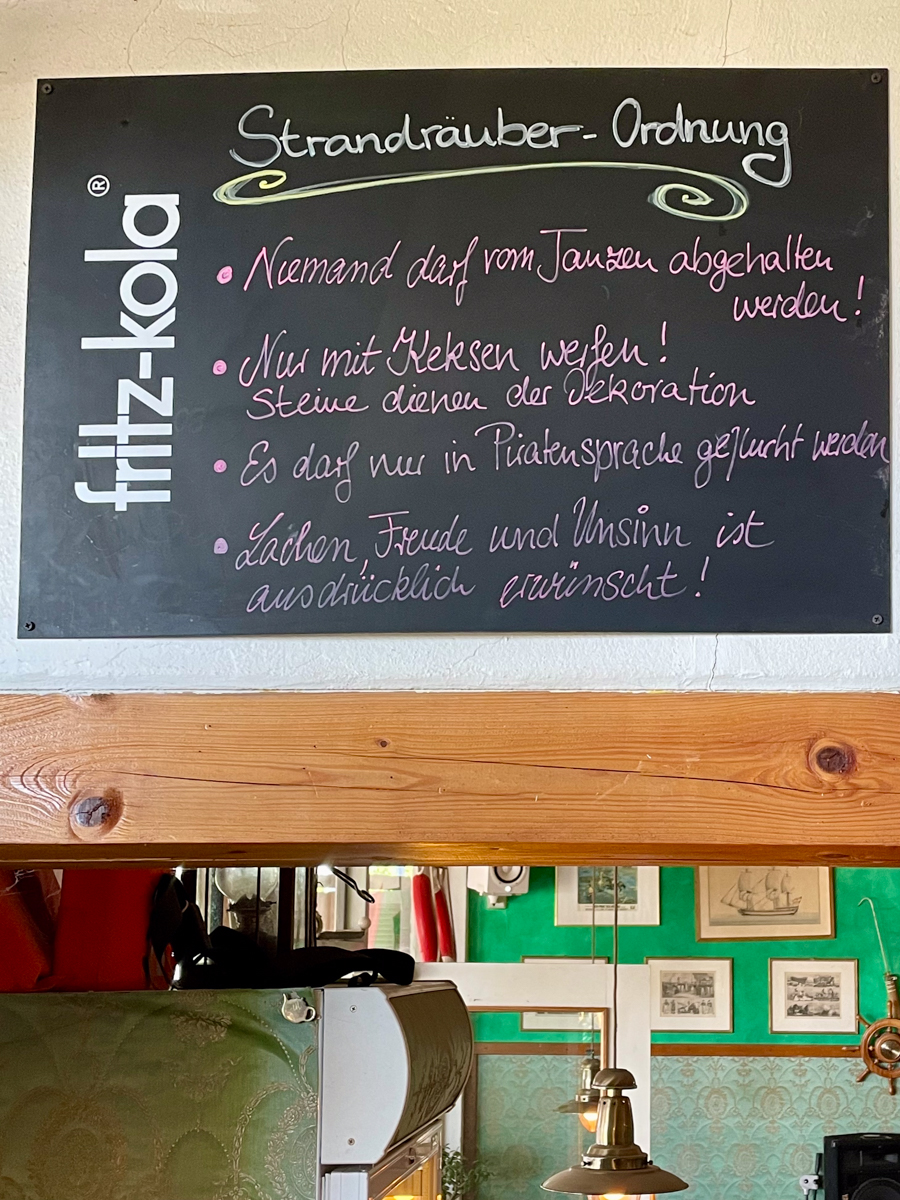 fritz-kola®
Strandräuber-Ordnung
• Niemand darf vom Tanzen abgehalten
werden!
• Nur mit Keksen werfen!
Steine dienen der Dekoration
• Es darf nur in Piratensprache geflucht werden
• Lachen, Freude und Unsinn ist
ausdrücklich erwünscht!